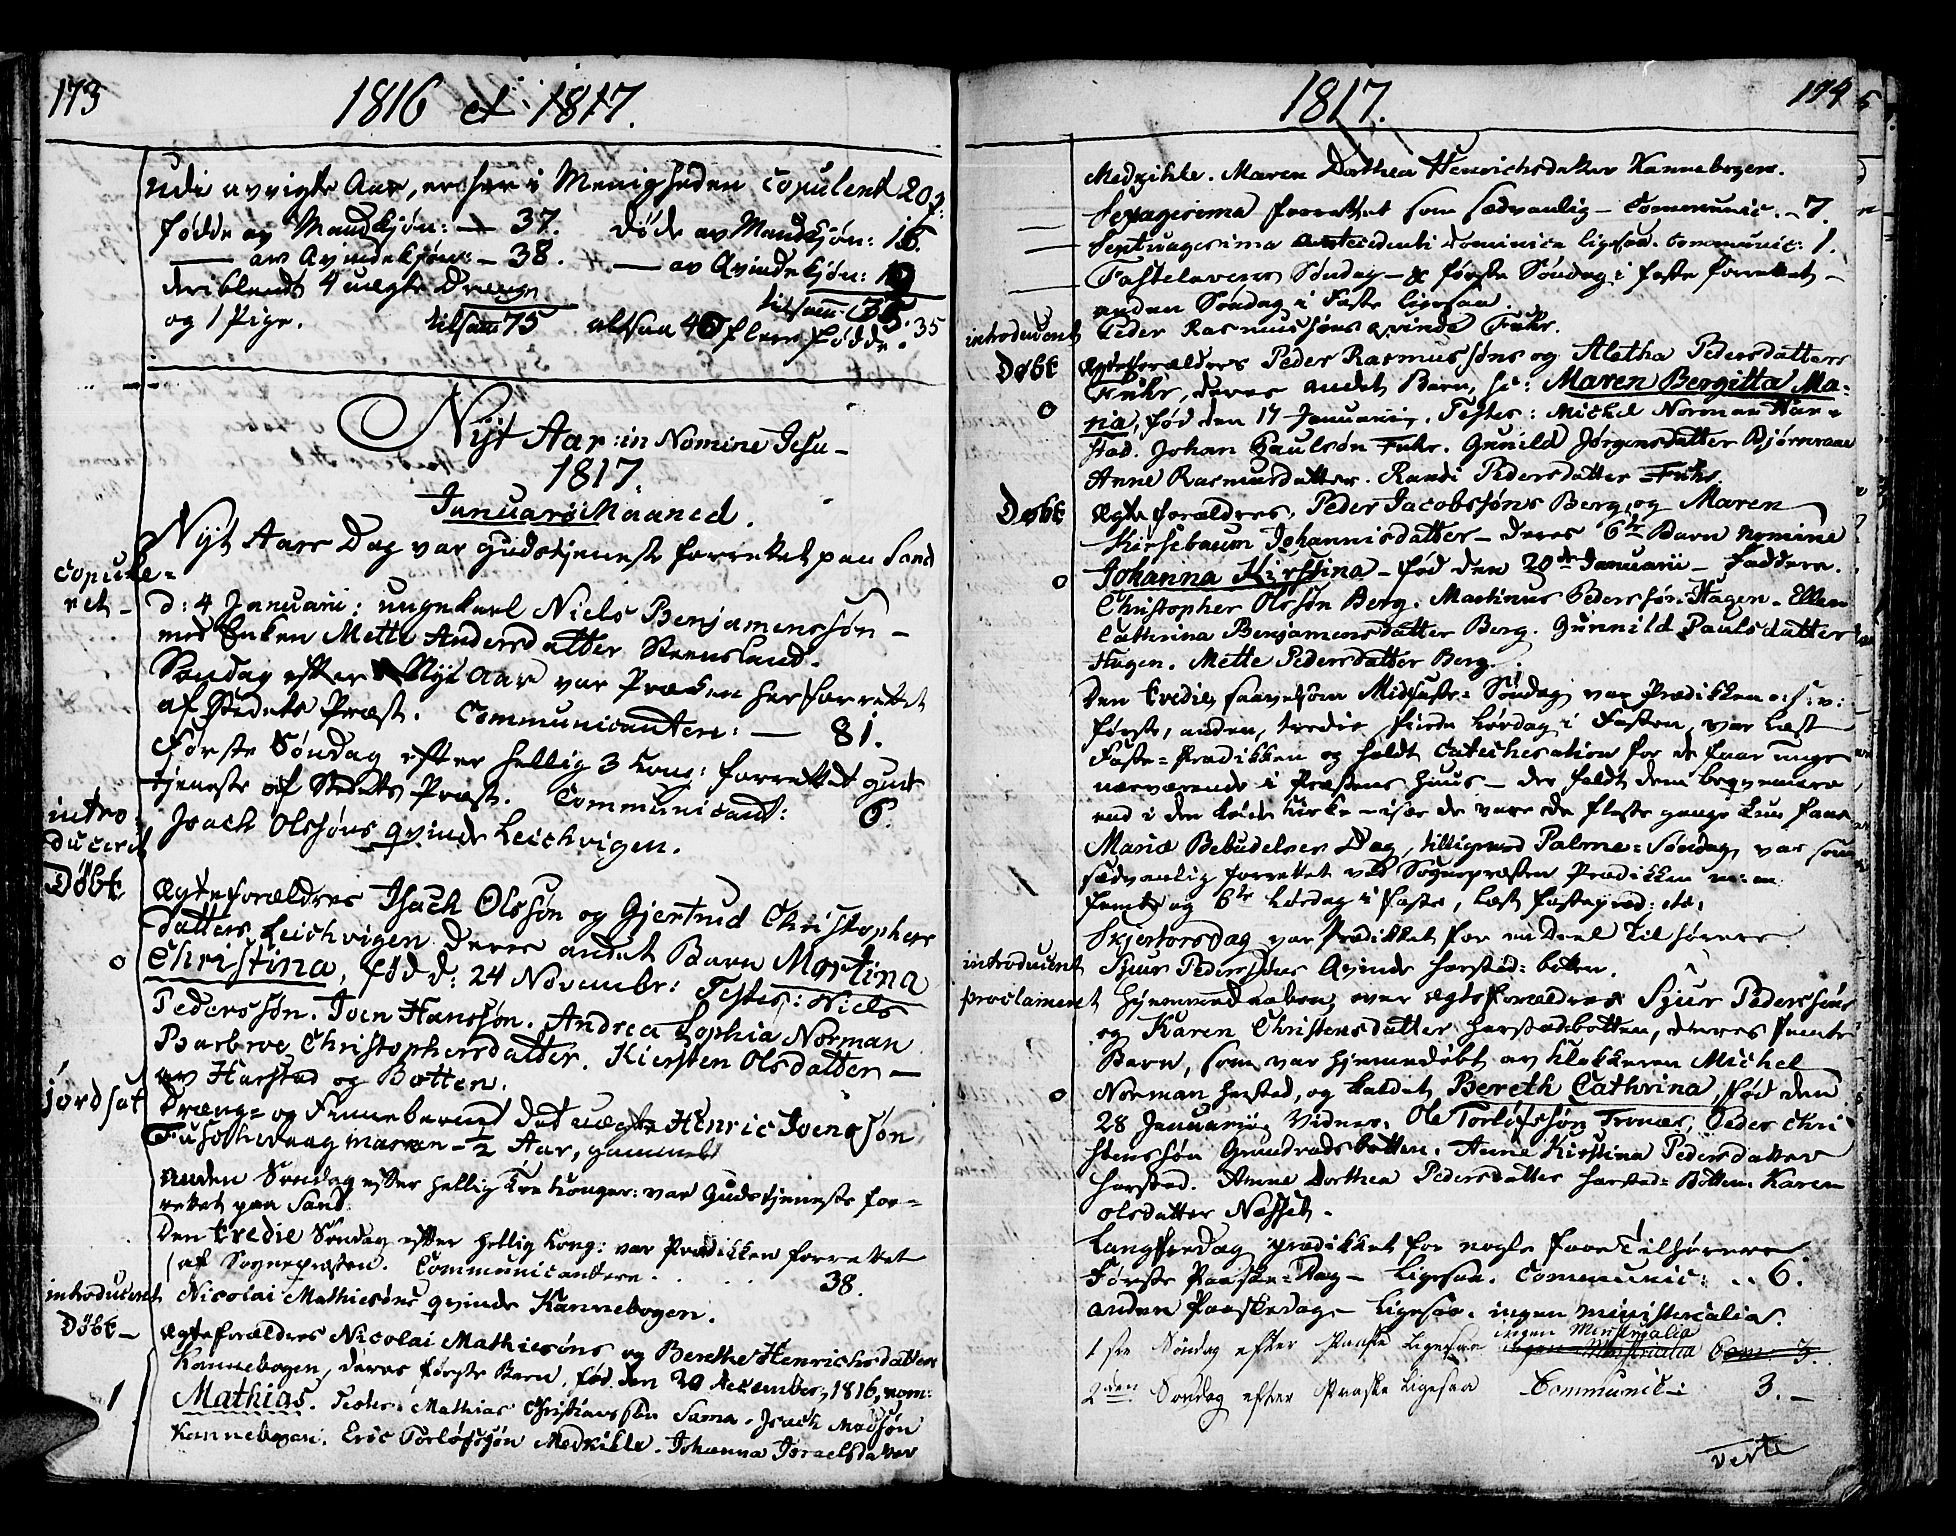 173
1816 et 1817.
udi avvigte Aar, er her i Menigheden Copulent 20 p:
fødde av Mandkjøn: — 37. døde av Mandkjøn: 16.
— av Qvindekjøn: — 38. — av Qvindekjøn: 19
deriblandt 4 uægte Drenge
og 1 Pige. tilsam 75 altsaa 40 flere fødde. tilsam: 35. 35
Nyt Aar: in Nomine Jesu —
1817.
Januarii Maaned.
Nyt Aars Dag var Gudstjeneste forrettet paa Sand
copule=
ret — d: 4 Januarii: ungekarl Niels Benjamenssøn —
med Enken Mette Andersdatter Steensland.
Søndag efter Nyt Aar var Præken her forrettet
af Stedets Præst. Communicanter: — 81.
Første Søndag efter hellig 3 Kong: forrettet Guds
tjeneste af Stedets Præst. Communicant: 6.
intro:
ducerit Isach Olssøns qvinde Leichvigen.
Døbt Ægteforældres Isach Olssøn og Gjertrud Christophers
datters Leichvigen deres andet Barn Martina
Christina, fød d: 24 Novembr: Testes: Niels
Pederssøn. Iven Hanssøn. Andrea Sophia Norman
Barbroe Christophersdatter. Kiersten Olsdatter —
av Harstad og Botten.
jordsat Dreng= og Finnebarnet det uægte Henric Ivenssøn
— ½ Aar, gammel
anden Søndag efter hellig tre Konger: var Gudstjeneste for=
rettet paa Sand.
Den tredie Søndag efter hellig Kong: var Prædikken forrettet
af Sognepræsten. Communicantere. . . . . 38.
introducent Nicolai Mathiesøns qvinde Kannebogen.
Døbt — Ægteforældres Nicolai Mathiesøns og Berethe Henrichsdatters
Kannebogen, deres første Barn, fød den 20 December, 1816, nom:
1 Mathias. Testes: Mathias Christianssøn Sama. Isach Madssøn
Kannebogen. Eric Torløfssøn Medkikle. Johanna Israelsdatter
1817. 174
Medkikle. Maren Dorthea Henrichsdatter Kannebogen.
Sexagesima forrettet som sædvanlig — Communic. — 7.
Septuagesima antecidenti Dominica ligesaa. Communic: 1.
Fastelavens Søndag — & første Søndag i faste forrettet —
anden Søndag i Faste ligesaa.
introducent Peder Rasmussøns qvinde Fuhr.
Døbt Ægteforældres Peder Rasmussøns og Aletha Pedersdatters
Fuhr, deres andet Barn, h: Maren Bergitta Ma=
ria, fød den 17 Januarii. Testes: Michel Norman Har=
stad. Johan Paulsøn Fuhr. Gunild Jørgensdatter Bjørnraae
Anne Rasmusdatter. Randi Pedersdatter Fuhr.
Døbt Ægteforældres, Peder Jacobssøns Berg, og Maren
Kirsebaum Johannisdatter — deres 6te Barn nomine
Johanna Kirstina — fød den 20de Januarii — Faddere.
Christopher Olssøn Berg. Martinus Pederssøn Hagen. Ellen
Cathrina Benjamensdatter Berg. Gunnild Paulsdatter
Hagen. Mette Pedersdatter Berg.
Den tredie, saavelsom Midfaste= Søndag var Prædikken
første, anden, tredie fierde Lørdag i Fasten, var læst
Faste=Prædikken og holdt Catechisation for de faae unge
nærværende i Præstens Huus — der faldt dem beqvemere
end i den kolde Kirke — især de vare de fleste gange kun faae
Mariæ Bebudelses Dag, tilligemed Palme=Søndag var som
sædvanlig forrettet ved Sognepræsten Prædikken
femte og 6te Lørdag i faste, læst Fastepræd: etc:
Skjertorsdag var Prædikket for en deel Tilhørere.
introducent Sjuer Pederssøns Qvinde Harstad=botten.
proclament Hjemmedaaben, over Ægteforældres Sjur Pederssøns
og Karen Christensdatter Harstadbotten, deres femte
Barn, som var hjemmedøbt av Klokkeren Michel
Norman Harstad, og kaldet Bereth Cathrina, fød den
28 Januarii, Vidner. Ole Torløfssøn Trones, Peder Chri
stenssøn Grundradsbotten. Anne Kirstina Pedersdatter
Harstad. Anne Dorthea Pedersdatter Harstad=Botten. Karen
Olsdatter Nesset.
Langfredag prædikket for nogle faae Tilhørere
Første Paaske=Dag — ligesaa. Communic: . . 6.
anden Paaskedag — ligesaa. ingen ministerialia.
1ste Søndag efter Paaske Ligesaa ingen Ministerialia
2den Søndag efter Paaske Ligesaa Communic: 3. —
verte